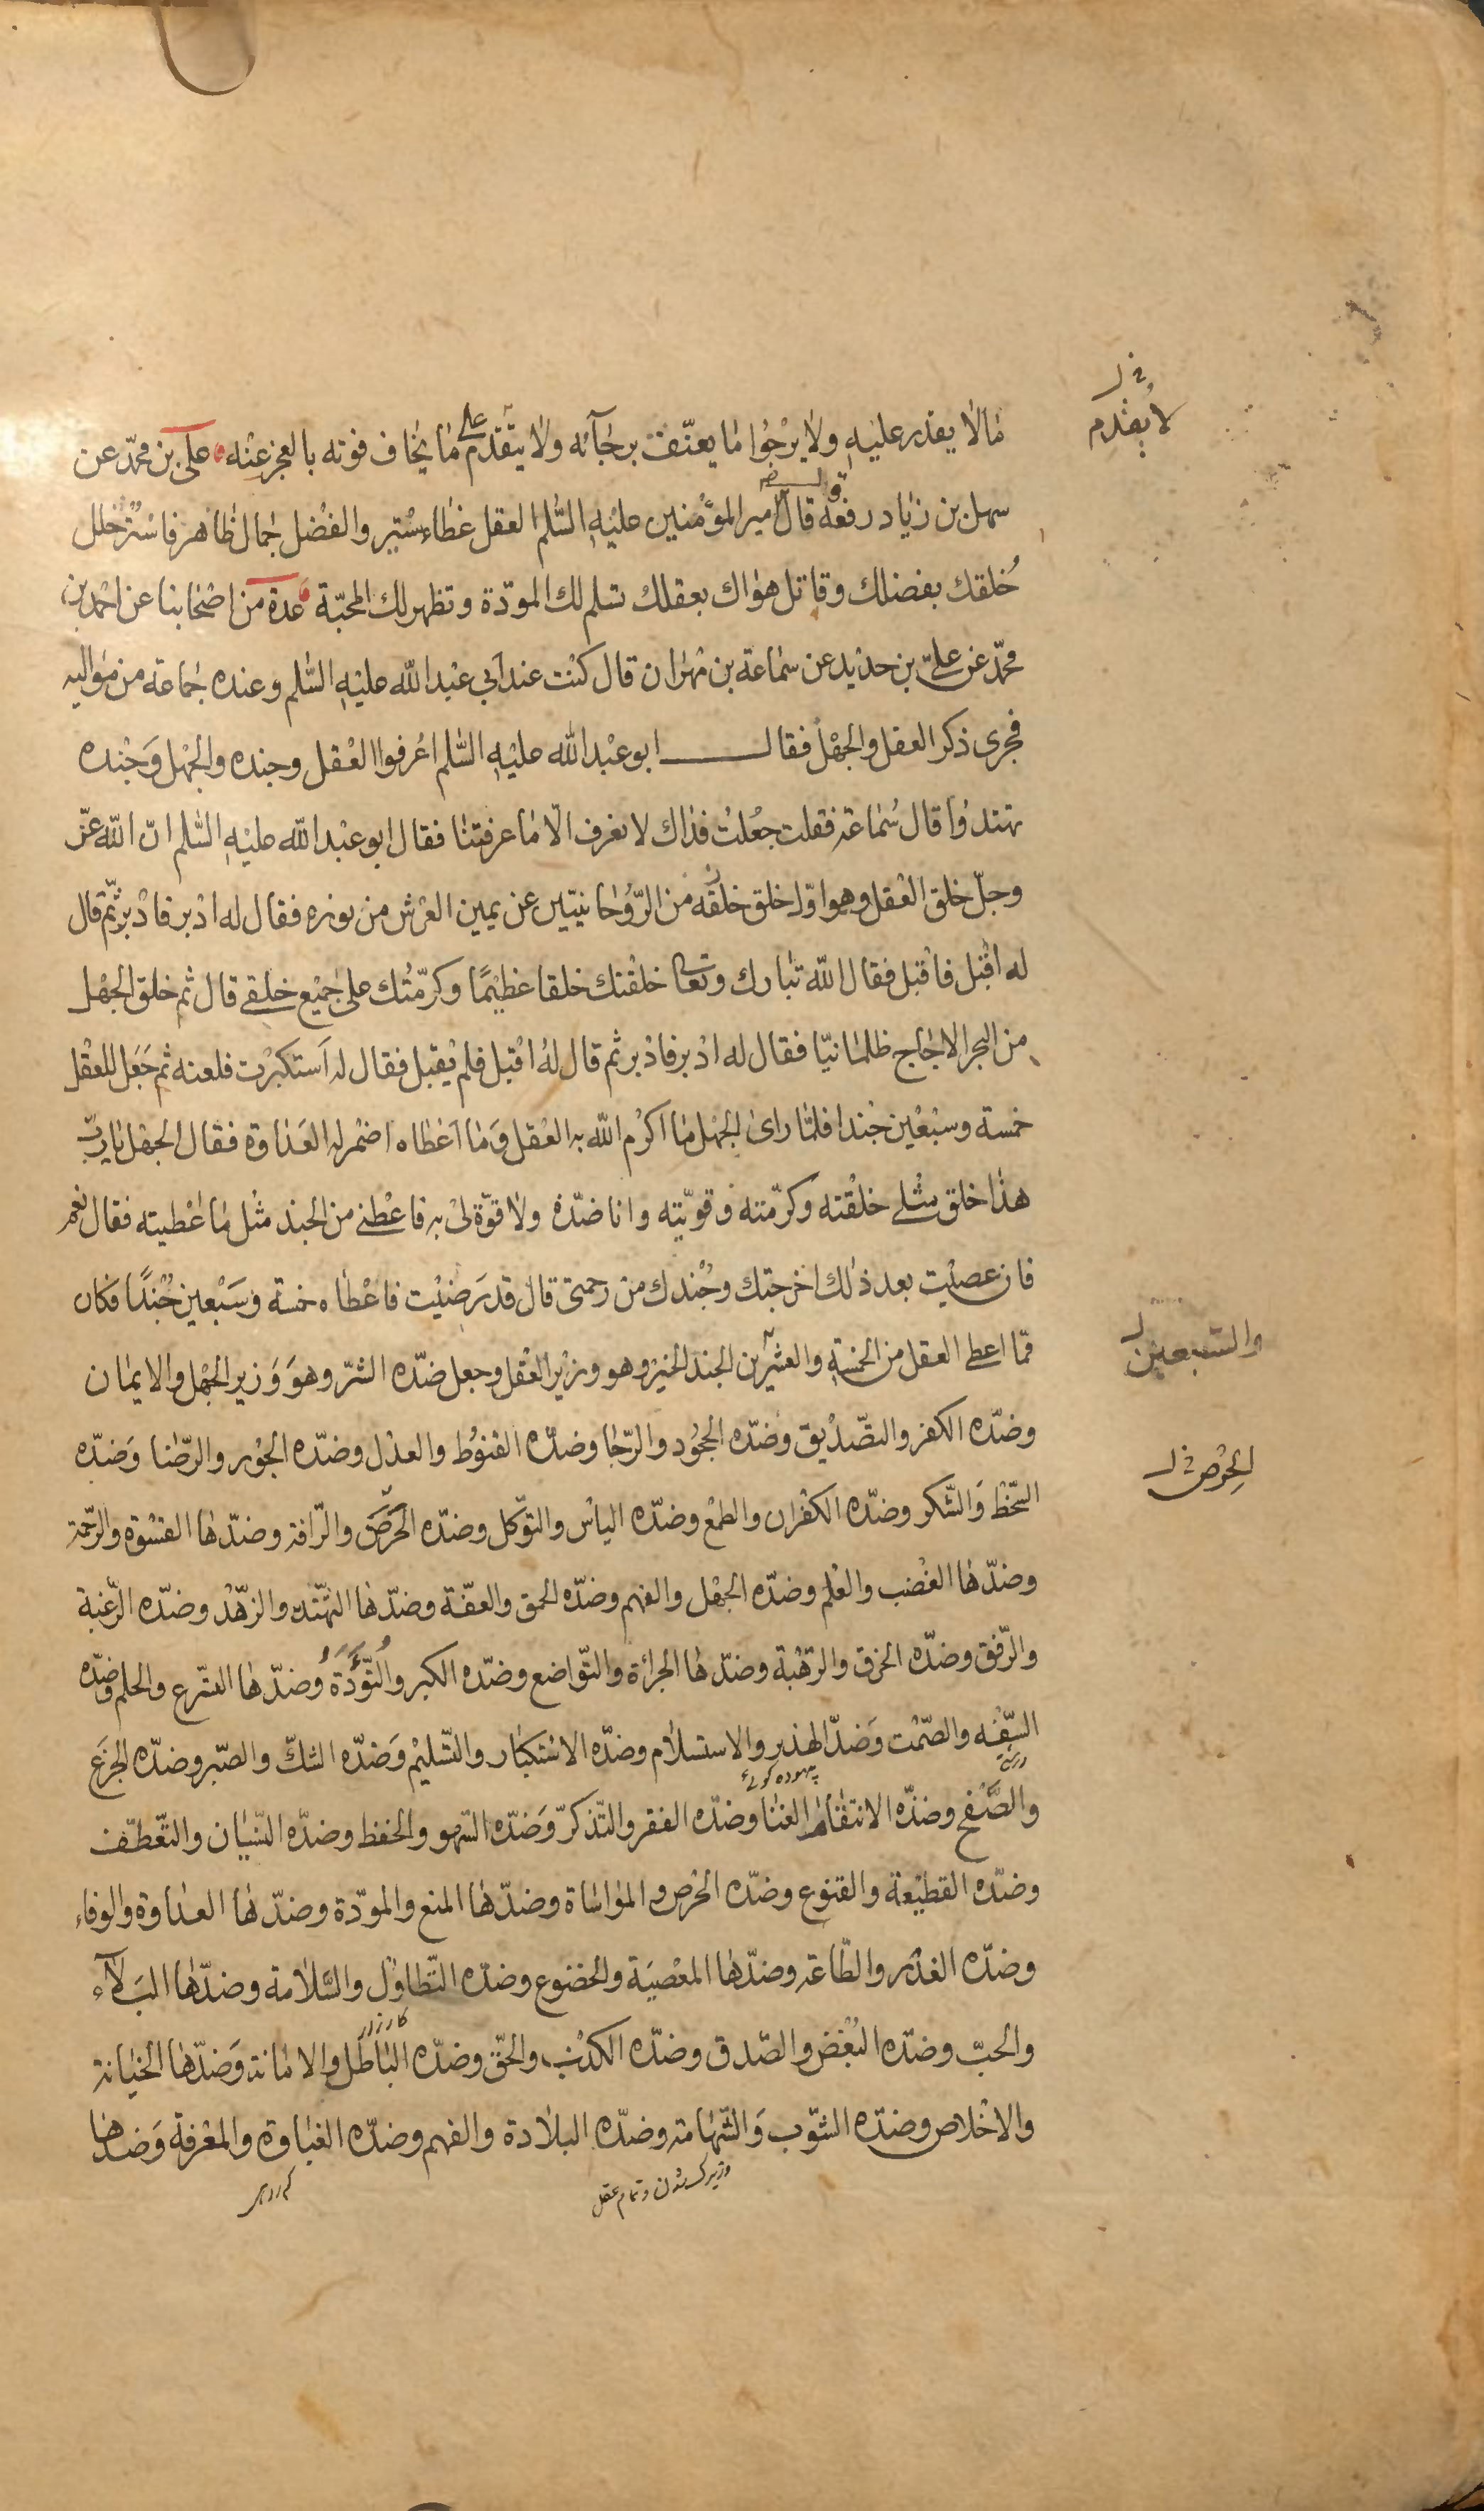 مالا يقدر عليه ولا يرجوا ما يعنّف برجآئه ولا يتقدم على ما يخاف فوته بالعجز عنه علي بن محمّد عن
لا يقدم خ ل
سهل بن زياد رفعه قال قال امير المؤمنين عليه السّلم العقل غطاء ستير والفضل جمال ظاهر فاستر خلل
خُلقك بفضلك وقاتل هواك بعقلك تسلم لك المودّة وتظهر لك المحبّة عدة من اصحابنا عن احمد بن
محمّد عن عليّ بن حديد عن سماعة بن مهران قال كنت عند ابي عبد الله عليه السّلم وعنده جماعة من مواليه
فجرى ذكر العقل والجهل فقال ابو عبد الله عليه السّلم اعرفوا العقل وجنده والجهل وَجنده
تهتدوا قال سُماعة فقلت جعلت فداك لا نعرف الّا ما عرفتنا فقال ابو عبد الله عليه السّلم انّ الله عزّ
وجلّ خلق العقل وهو اوّل خلق خلقه من الرّوحانيّين عن يمين العرش من نوره فقال له ادبر فادبر ثمّ قال
له اقبل فاقبل فقال الله تبارك وتعا خلقتك خلقا عظيمًا وكرّمتُك على جميع خلقي قال ثم خلق الجهل
من البحر الاجاج ظلمانيّا فقال له ادبر فادبر ثم قال لهُ اقبل فلم يقبل فقال له اَستكبرت فلعنه ثم جَعَل للعقل
خمسة وسبعين جندا فلمّا راى الجهل ما اكرم الله به العقل وَما اعطاه اضمر له العَداوة فقال الجهل يا ربّ
هذا خلق مثلي خلقته وكرّمته وقوّيته وانا ضدّه ولا قوّة لي به فاعطني من الجند مثل ما اعطيته فقال نعم
فان عصيت بعد ذلك اخرجتك وجُندك من رحمتي قال قد رَضيت فاعطاه خمسة وسَبعين جُندًا فكان
ممّا اعطى العقل من الخمسة والعشرين الجند الخير وهو وزير العقل وجعل ضدّه الشرّ وهوَ وَزير الجهل والايمان
والسّبعين ل
وضدّه الكفر والتصّديق وضدّه الجحُود والرّجا وضدّه القنوُط والعدل وضدّه الجوْر والرّضا وَضدّه
السّخط وَالشّكر وضدّه الكفران والطمع وضدّه الياس والتوّكل وضدّه الحَرصَ والرّافة وضدّها القسْوة والرّحمة
الحِرْص خ ل
وضدّها الغضب والعلم وضدّه الجهل والفهم وضدّه الحمق والعفّة وضدّها التهّتك والزهّد وضدّه الرّغبة
والرّفق وضدّه الخرق والرّهبة وضدّها الجرائة والتوّاضع وضدّه الكبر والتُّؤَدَةُ وضدّها التسّرع والحلم وضدّه
السّفه والصّمت وَضدّ الهذر والاستسلام وضدّه الاستكبار والتّسليم وَضدّه الشكّ والصّبر وضدّه الجزَع
بيهوده كوئى
والصَّفح وضدّه الانتقام والغنا وضدّه الفقر والتّذكرّ وَضدّه السّهو والحفظ وضدّه النّسيان والتعّطّف
وضدّه القطيعة والقنوع وضدّه الحرص والمواساة وضدّها المنع والمودّة وضدّها العداوة والوفاء
وضدّه الغدر والطّاعة وضدّها المعصيَة والخضوع وضدّه التّطاول والسّلامة وضدّها البَلآء
والحبّ وضدّه البُغض والصّدق وضدّه الكذب والحقّ وضدّه الباطل والامانة وَضدّها الخيانة
والاخلاص وضدّه الشوّب وَالشّهامة وضدّه البلادة والفهم وضدّه الغباوة والمعرفة وَضدها